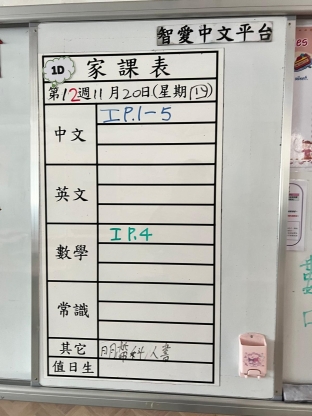 智愛中文平台
1D
家課表
第12週11月20日(星期四)
中文
I P.1-5
英文
數學
I P.4
常識
其它
值日生